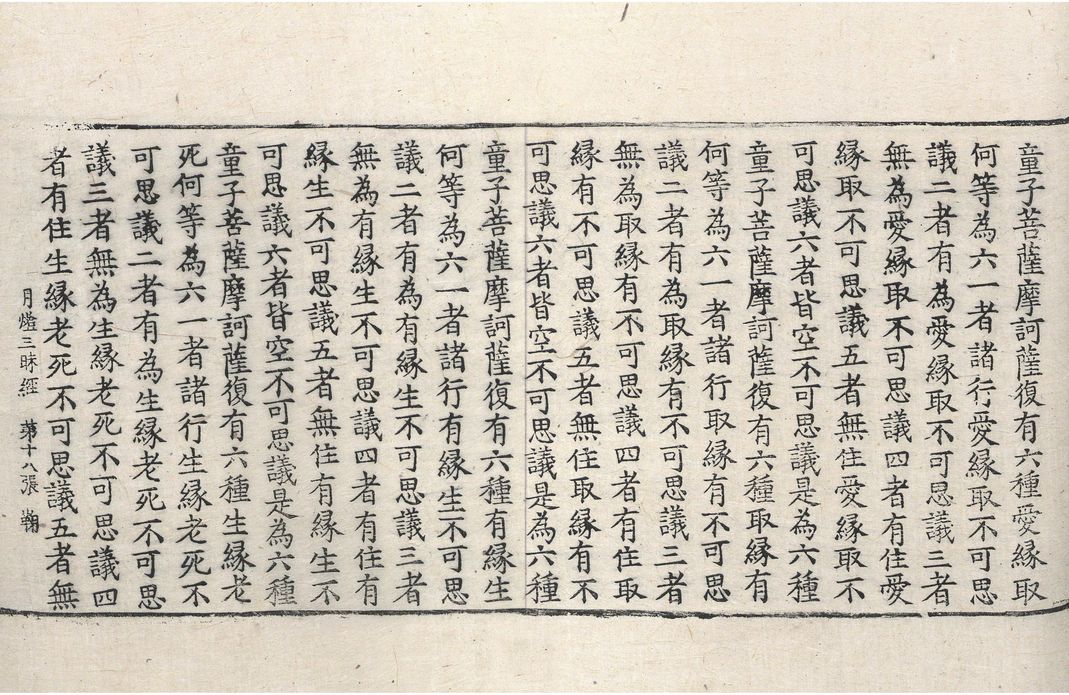 童子菩薩摩訶薩復有六種愛縁取
何等為六一者諸行愛縁取不可思
議二者有為愛縁取不可思議三者
無為愛縁取不可思議四者有住愛
縁取不可思議五者無住愛縁取不
可思議六者皆空不可思議是為六種
童子菩薩摩訶薩復有六種取縁有
何等為六一者諸行取縁有不可思
議二者有為取縁有不可思議三者
無為取縁有不可思議四者有住取
縁有不可思議五者無住取縁有不
可思議六者皆空不可思議是為六種
童子菩薩摩訶薩復有六種有縁生
何等為六一者諸行有縁生不可思
議二者有為有縁生不可思議三者
無為有縁生不可思議四者有住有
縁生不可思議五者無住有縁生不
可思議六者皆空不可思議是為六種
童子菩薩摩訶薩復有六種生縁老
死何等為六一者諸行生縁老死不
可思議二者有為生縁老死不可思
議三者無為生縁老死不可思議四
者有住生縁老死不可思議五者無
月燈三昧經 第十八張 鞠